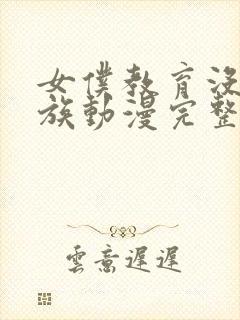 女僕教育沒
族動漫完整
雲意遲遲